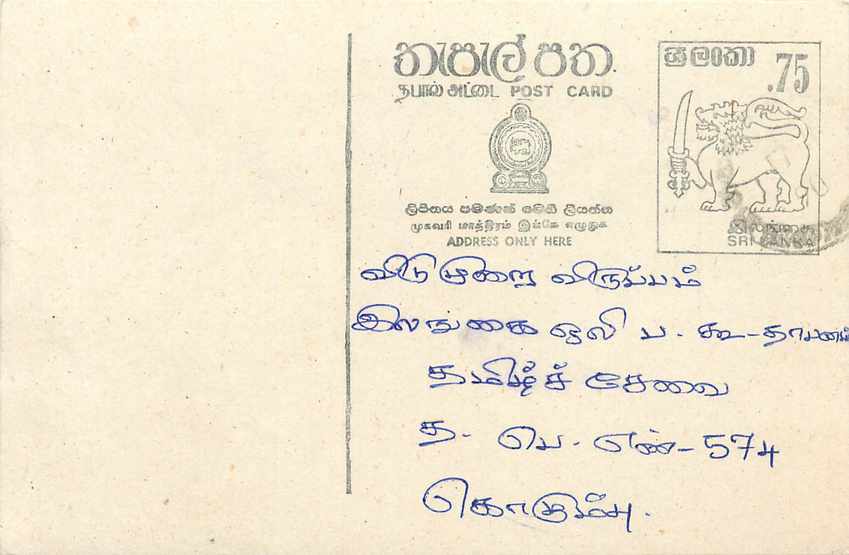 තැපැල් පත
தபால் அட்டை POST CARD
ලිපිනය පමණක් මෙහි ලියන්න
முகவரி மாத்திரம் இங்கே எழுதுக
ADDRESS ONLY HERE
ශ්‍රී ලංකා
.75
இலங்கை
SRI LANKA
விடுமுறை விருப்பம்
இலங்கை ஒலி ப. கூ-தாபனம்
தமிழ்ச் சேவை
த. பெ. எண்-574
கொழும்பு.